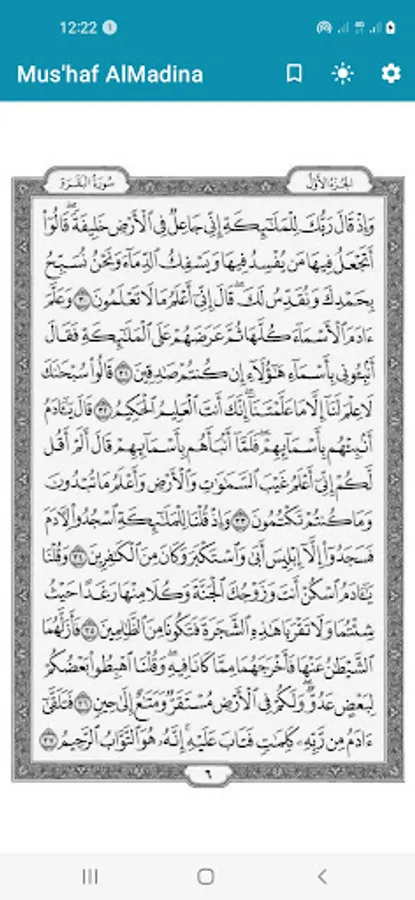 12:22
Mus'haf AlMadina
الجزء الأول
سورة البقرة
وَإِذْ قَالَ رَبُّكَ لِلْمَلَٰٓئِكَةِ إِنِّى جَاعِلٌ فِى ٱلْأَرْضِ خَلِيفَةً ۖ قَالُوٓا۟
أَتَجْعَلُ فِيهَا مَن يُفْسِدُ فِيهَا وَيَسْفِكُ ٱلدِّمَآءَ وَنَحْنُ نُسَبِّحُ
بِحَمْدِكَ وَنُقَدِّسُ لَكَ ۖ قَالَ إِنِّىٓ أَعْلَمُ مَا لَا تَعْلَمُونَ ٣٠ وَعَلَّمَ
ءَادَمَ ٱلْأَسْمَآءَ كُلَّهَا ثُمَّ عَرَضَهُمْ عَلَى ٱلْمَلَٰٓئِكَةِ فَقَالَ
أَنۢبِـُٔونِى بِأَسْمَآءِ هَٰٓؤُلَآءِ إِن كُنتُمْ صَٰدِقِينَ ٣١ قَالُوا۟ سُبْحَٰنَكَ
لَا عِلْمَ لَنَآ إِلَّا مَا عَلَّمْتَنَآ ۖ إِنَّكَ أَنتَ ٱلْعَلِيمُ ٱلْحَكِيمُ ٣٢ قَالَ يَٰٓـَٔادَمُ
أَنۢبِئْهُم بِأَسْمَآئِهِمْ ۖ فَلَمَّآ أَنۢبَأَهُم بِأَسْمَآئِهِمْ قَالَ أَلَمْ أَقُل
لَّكُمْ إِنِّىٓ أَعْلَمُ غَيْبَ ٱلسَّمَٰوَٰتِ وَٱلْأَرْضِ وَأَعْلَمُ مَا تُبْدُونَ
وَمَا كُنتُمْ تَكْتُمُونَ ٣٣ وَإِذْ قُلْنَا لِلْمَلَٰٓئِكَةِ ٱسْجُدُوا۟ لِـَٔادَمَ
فَسَجَدُوٓا۟ إِلَّآ إِبْلِيسَ أَبَىٰ وَٱسْتَكْبَرَ وَكَانَ مِنَ ٱلْكَٰفِرِينَ ٣٤ وَقُلْنَا
يَٰٓـَٔادَمُ ٱسْكُنْ أَنتَ وَزَوْجُكَ ٱلْجَنَّةَ وَكُلَا مِنْهَا رَغَدًا حَيْثُ
شِئْتُمَا وَلَا تَقْرَبَا هَٰذِهِ ٱلشَّجَرَةَ فَتَكُونَا مِنَ ٱلظَّٰلِمِينَ ٣٥ فَأَزَلَّهُمَا
ٱلشَّيْطَٰنُ عَنْهَا فَأَخْرَجَهُمَا مِمَّا كَانَا فِيهِ ۖ وَقُلْنَا ٱهْبِطُوا۟ بَعْضُكُمْ
لِبَعْضٍ عَدُوٌّ ۖ وَلَكُمْ فِى ٱلْأَرْضِ مُسْتَقَرٌّ وَمَتَٰعٌ إِلَىٰ حِينٍ ٣٦ فَتَلَقَّىٰٓ
ءَادَمُ مِن رَّبِّهِۦ كَلِمَٰتٍ فَتَابَ عَلَيْهِ ۚ إِنَّهُۥ هُوَ ٱلتَّوَّابُ ٱلرَّحِيمُ ٣٧
٦